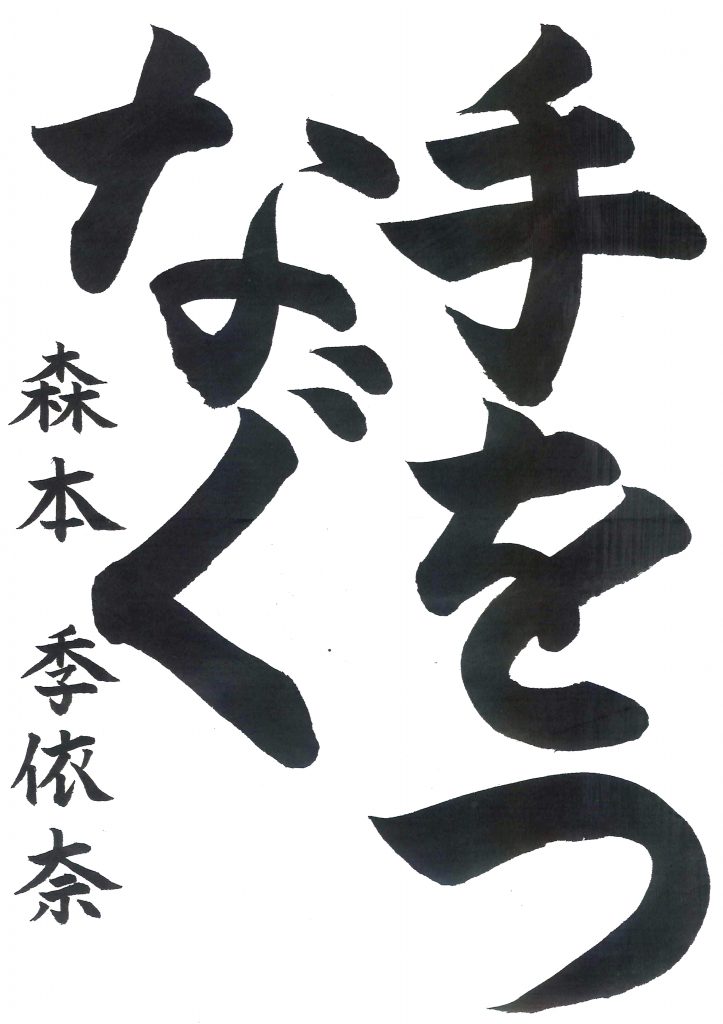 手をつ
なぐ
森本 季依奈